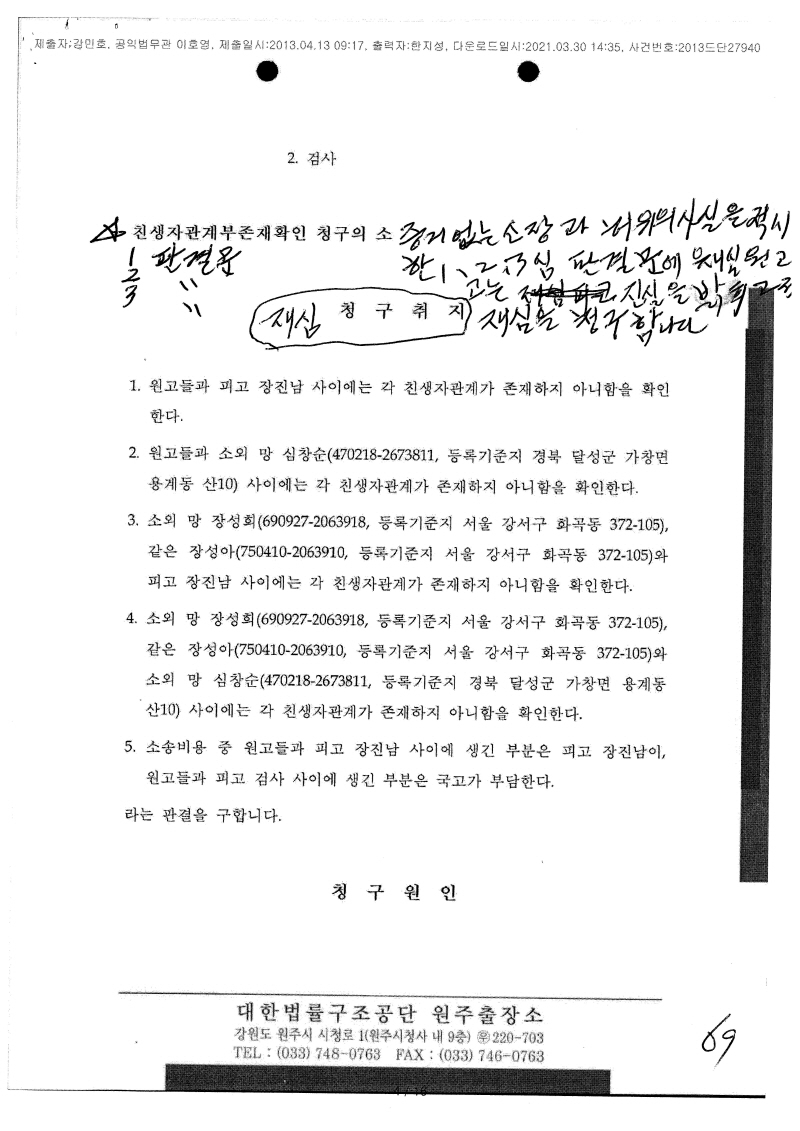 제출자:강민호, 공익법무관 이호영, 제출일시:2013.04.13 09:17, 출력자:한지성, 다운로드일시:2021.03.30 14:35, 사건번호:2013드단27940
2. 검사
친생자관계부존재확인 청구의 소 증거없는 소장과 허위의사실을 적시
1 판결문 한 1, 2, 3심 판결문에 재심원고
2 〃 고는 진실을 밝히고조
3 〃 재심을 청구합니다
재심 청 구 취 지
1. 원고들과 피고 장진남 사이에는 각 친생자관계가 존재하지 아니함을 확인
한다.
2. 원고들과 소외 망 심창순(470218-2673811, 등록기준지 경북 달성군 가창면
용계동 산10) 사이에는 각 친생자관계가 존재하지 아니함을 확인한다.
3. 소외 망 장성희(690927-2063918, 등록기준지 서울 강서구 화곡동 372-105),
같은 장성아(750410-2063910, 등록기준지 서울 강서구 화곡동 372-105)와
피고 장진남 사이에는 각 친생자관계가 존재하지 아니함을 확인한다.
4. 소외 망 장성희(690927-2063918, 등록기준지 서울 강서구 화곡동 372-105),
같은 장성아(750410-2063910, 등록기준지 서울 강서구 화곡동 372-105)와
소외 망 심창순(470218-2673811, 등록기준지 경북 달성군 가창면 용계동
산10) 사이에는 각 친생자관계가 존재하지 아니함을 확인한다.
5. 소송비용 중 원고들과 피고 장진남 사이에 생긴 부분은 피고 장진남이,
원고들과 피고 검사 사이에 생긴 부분은 국고가 부담한다.
라는 판결을 구합니다.
청 구 원 인
대한법률구조공단 원주출장소
강원도 원주시 시청로 1(원주시청사 내 9층) ㉾220-703
TEL : (033) 748-0763 FAX : (033) 746-0763
69